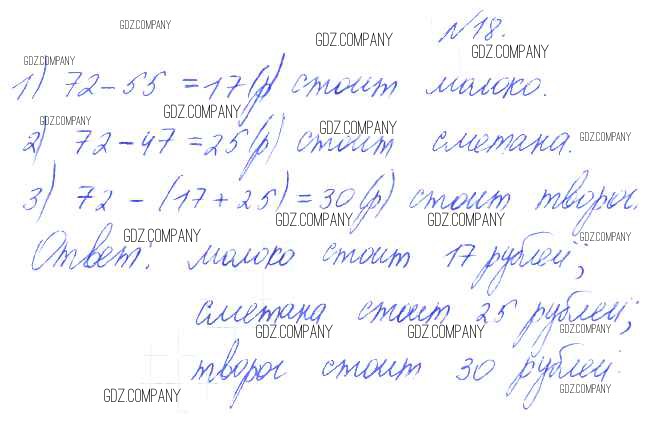 GDZ.COMPANY
№18.
GDZ.COMPANY
GDZ.COMPANY
GDZ.COMPANY
1) 72-55 =17(р) стоит молоко.
GDZ.COMPANY
GDZ.COMPANY
GDZ.COMPANY
GDZ.COMPANY
2) 72-47 =25(р) стоит сметана.
3) 72 - (17+25)=30(р) стоит творог.
GDZ.COMPANY
GDZ.COMPANY
GDZ.COMPANY
GDZ.COMPANY
Ответ: молоко стоит 17 рублей;
сметана стоит 25 рублей;
GDZ.COMPANY
GDZ.COMPANY
GDZ.COMPANY
творог стоит 30 рублей.
GDZ.COMPANY
GDZ.COMPANY